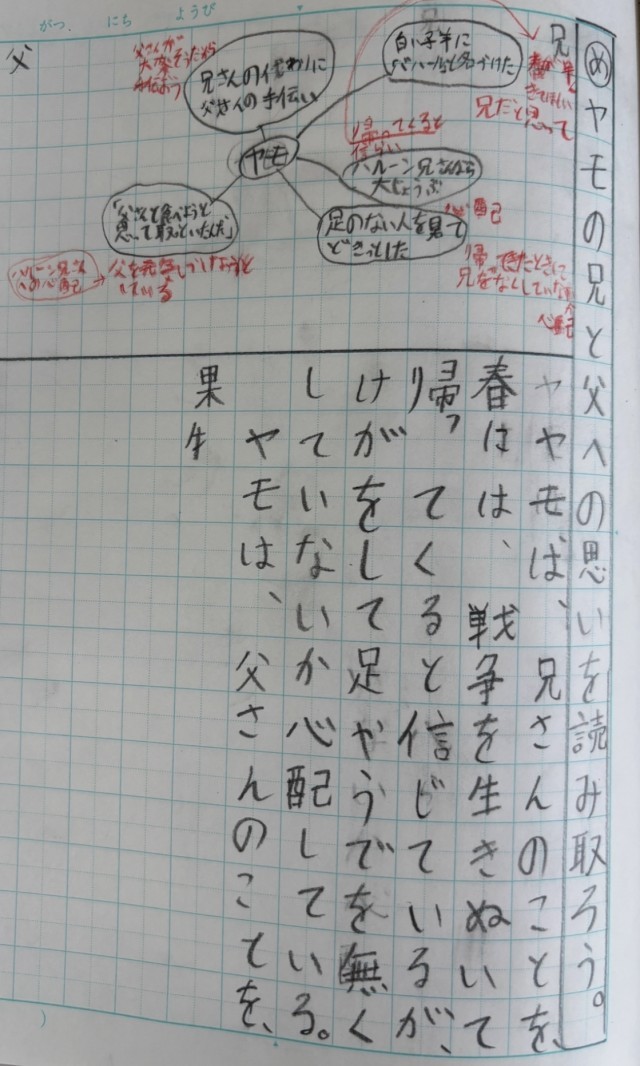 がつ、 にち ようび
㋱ヤモの兄と父への思いを読み取ろう。
兄
兄だと思って
白い子羊に
バハールと名づけた
帰ってくると
信らい
ハルーン兄さんなら
大じょうぶ
足のない人を見て
どきっとした
心配
帰ってきたときに
心配
ヤモ
兄さんの代わりに
父さんの手伝い
父さんが
「父さんと食べようと
思って取っといたんだ」
ハルーン兄さん
への心配
父
ヤヤモは、兄さんのことを、
春はは、戦争を生きぬいて
帰ってくると信じているが、
けがをして足やうでを無く
していないか心配している。
ヤモは、父さんのことを、
果